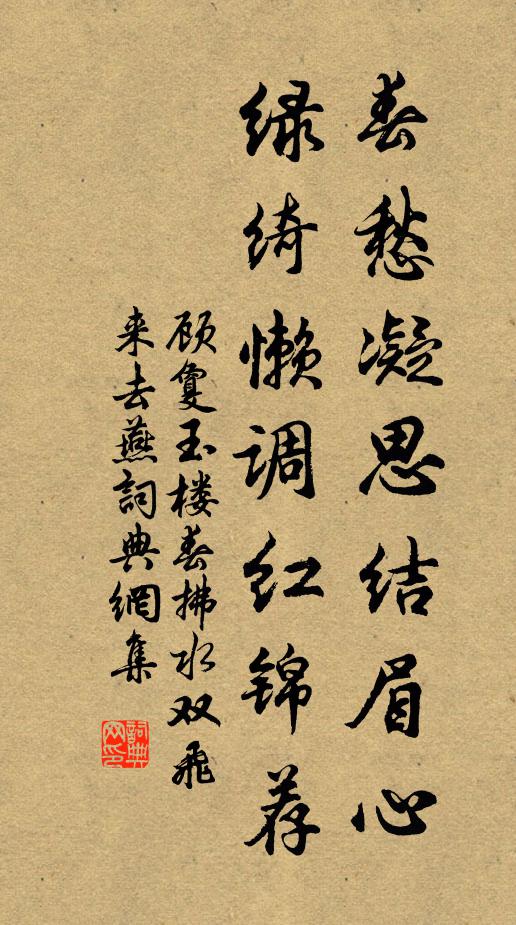 春愁凝思结眉心
绿绮懒调红锦荐
顾敻玉楼春拂水双飞
来去燕詞典網集
詞典网印